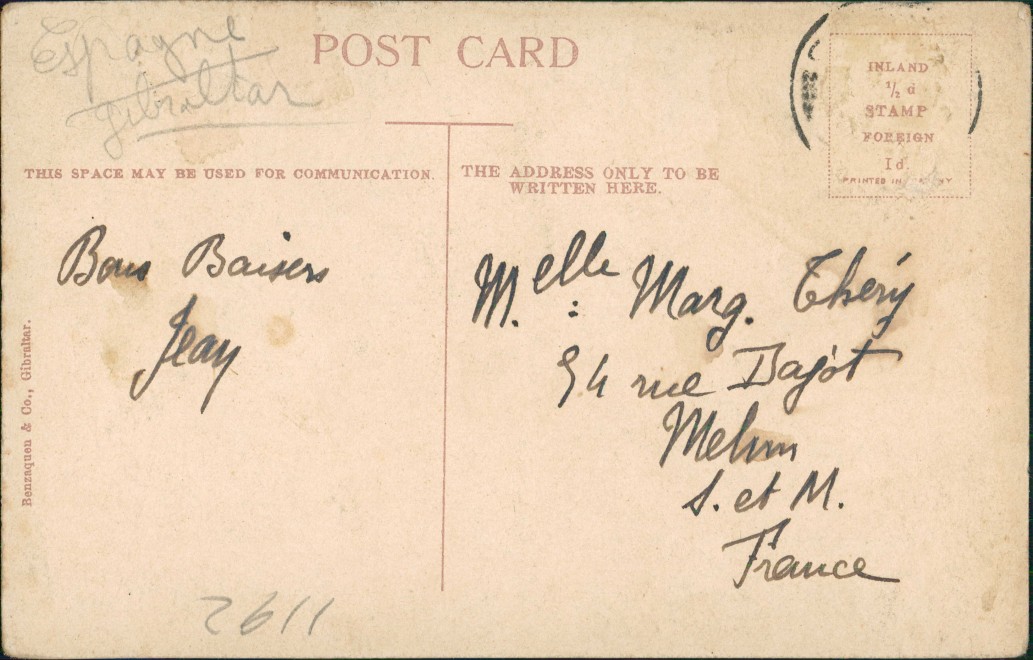 Espagne
Gibraltar
POST CARD
INLAND
½ d
STAMP
FOREIGN
1d
PRINTED IN
THIS SPACE MAY BE USED FOR COMMUNICATION.
THE ADDRESS ONLY TO BE
WRITTEN HERE.
Bons Baisers
Jean
Benzaquen & Co., Gibraltar.
M.elle Marg. Théry
rue Dajot
Melun
S. et M.
France
2611